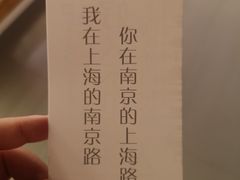 我在上海的南京路
你在南京的上海路